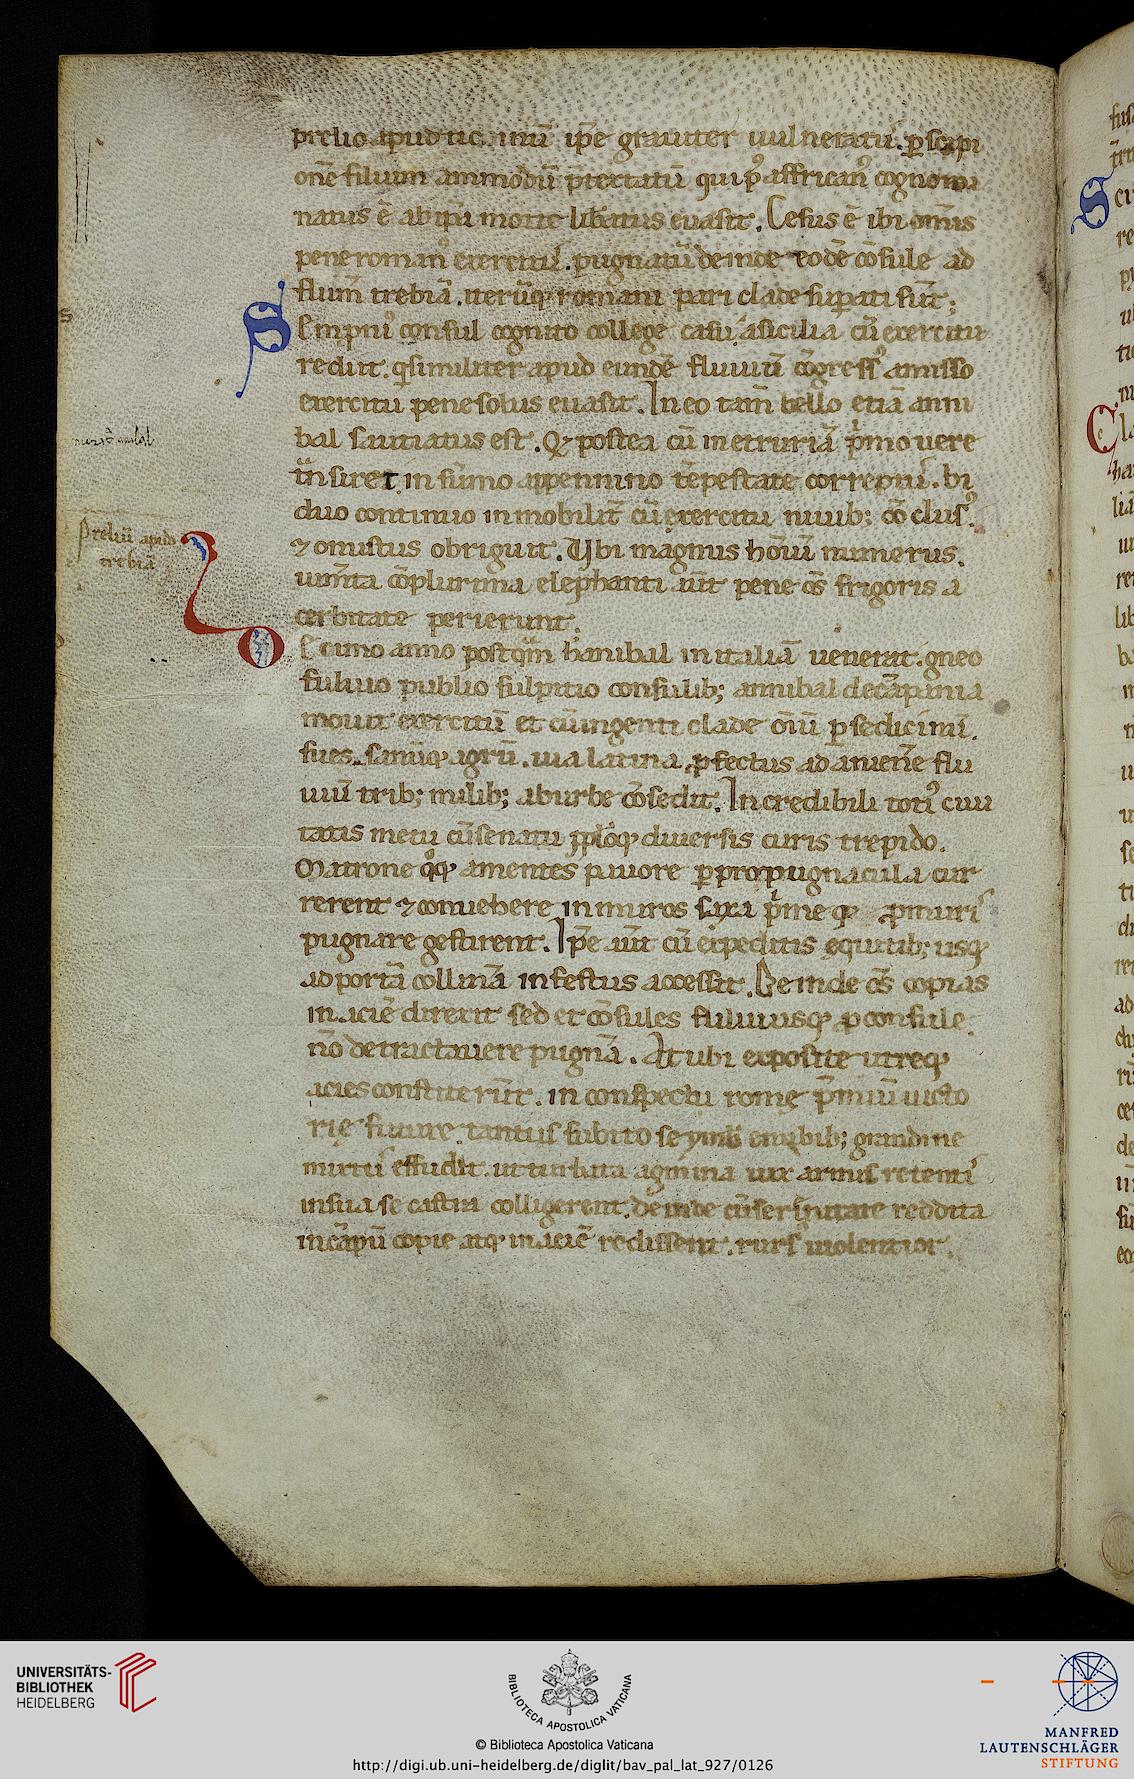 prelio apud tic inū ip̄e grauiter uulneratꝰ. ꝑ scipi
onē filium ammodū p̄textatū qui p̾ affricanꝰ cognomi
natus ē ab ip̄a morte libatus euasit. Cesus ē ibi omīs
pene romanꝰ exercitꝰ. pugnatū deinde eodē cōsule ad
flum̄ trebiā. iterūqꝫ romani pari clade suꝑati sūt;
Sempniꝰ consul cognito college casu. asicilia cū exercitu
rediit. qͥ similiter apud eundē fluuiū cōgressꝰ amisso
exercitu pene solus euasit. In eo tam̄ bello etiā anni
bal sautiatus est. Qͥ postea cū in etruriā pͥmo uere
tͣnsiret in sūmo appennino tēpestate correptꝰ. bi
duo continuo inmobilit̄ cū exercitu niuibꝫ cōclusꝰ.
⁊ onustus obriguit. Ubi magnus hōiū numerus.
iumēta cōplurima elephanti aut̄ pene oēs frigoris a
cerbitate perierunt.
Decimo anno postqͣm hanibal in italiā uenerat. gneo
fuluio publio sulpitio consulibꝫ annibal de cāpania
mouit exercitū et cū ingenti clade oīū ꝑ sedicimī.
sues. saniiqꝫ agrū. uia latina. ꝓfectus ad anienē flu
uiū tribꝫ milibꝫ ab urbe cōsedit. Incredibili totiꝰ ciui
tatis metu cū senatu pploqꝫ diuersis curis trepido.
Matrone qͦqꝫ amentes pauore ꝑ propugnacula cur
rerent ⁊ conuehere in muros saxa pͥme qꝫ ꝓ muris
pugnare gestirent. Ip̄e aut̄ cū expeditis equitibꝫ usqꝫ
ad portā collinā infestus accessit. Deinde oēs copias
in aciē direxit sed et cōsules fuluiusqꝫ ꝓconsule
nō detractauere pugnā. At ubi exposite utreqꝫ
acies constiterūt. in conspectu rome p̄miū uicto
rię future tantus subito se ymb̄ e nubibꝫ grandine
mixtꝰ effudit. ut turbata agmina uix armis retentꝭ
in sua se castra colligerent. deinde cū serinitate reddita
in cāpū copie atqꝫ in aciē redissent. rursꝰ uiolentior.
Preliū apud
trebiā
UNIVERSITÄTS-
BIBLIOTHEK
HEIDELBERG
BIBLIOTECA APOSTOLICA VATICANA
© Biblioteca Apostolica Vaticana
http://digi.ub.uni-heidelberg.de/diglit/bav_pal_lat_927/0126
MANFRED
LAUTENSCHLÄGER
STIFTUNG